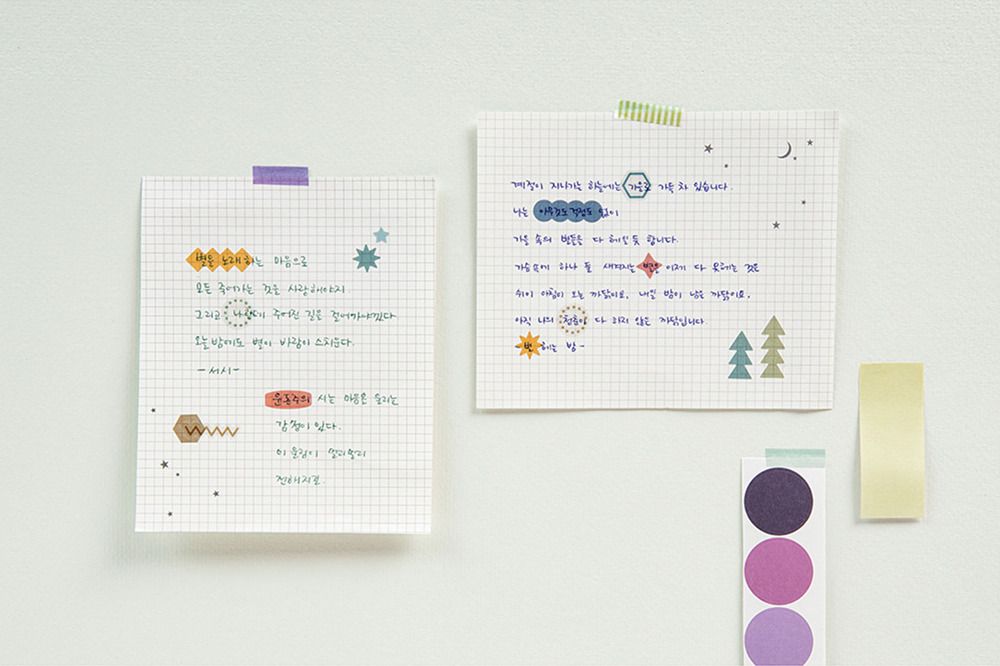 별을 노래하는 마음으로
모든 죽어가는 것을 사랑해야지
그리고 나한테 주어진 길을 걸어가야겠다
오늘밤에도 별이 바람이 스치운다.
-서시-
윤동주의 시는 마음을 울리는
감정이 있다.
이 울림이 멀리멀리
전해지길.
계절이 지나가는 하늘에는 가을로 가득 차 있습니다.
나는 아무것도걱정도 없이
가을 속의 별들을 다 헤일듯 합니다.
가슴속에 하나 둘 새겨지는 별을 이제 다 못헤는 것은
쉬이 아침이 오는 까닭이요, 내일 밤이 남은 까닭이요,
아직 나의 청춘이 다 하지 않은 까닭입니다.
-별 헤는 밤-